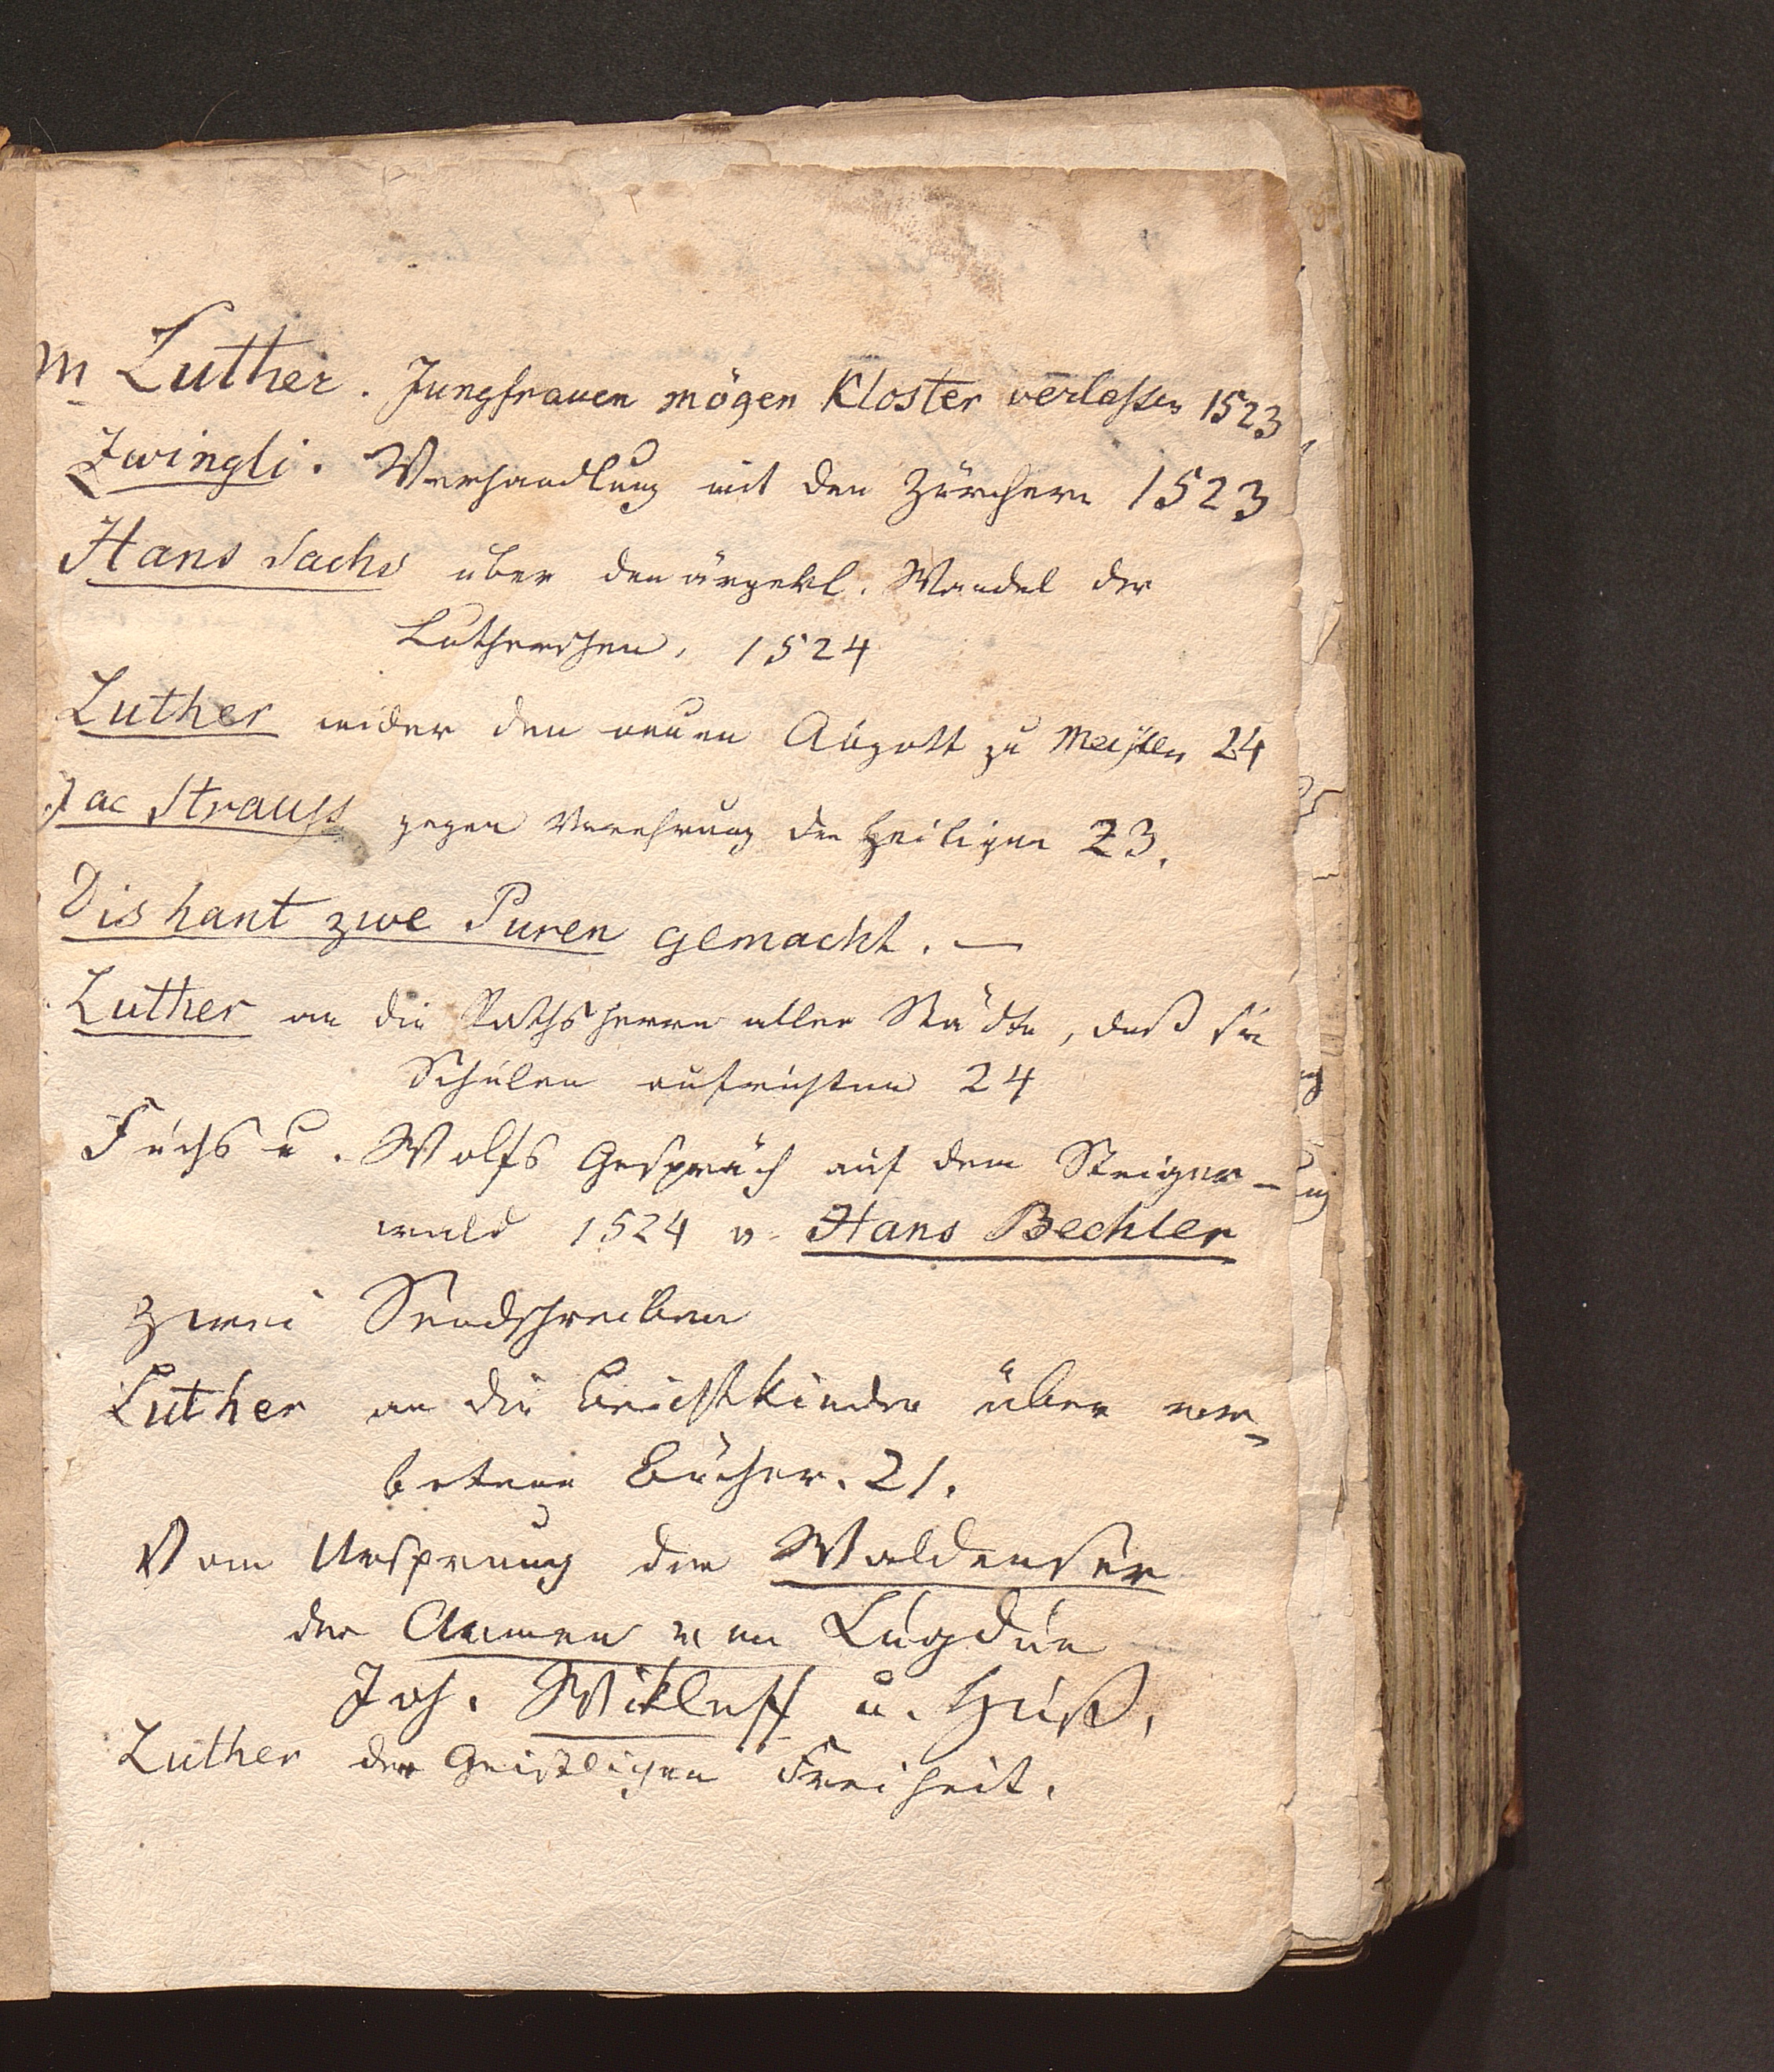 M Luther. Jungfrauen mögen Kloster verlassen 1523
Zwingli. Verhandlung mit den Zürchern 1523
Hans Sachs über den ärgerl. Wandel der
Lutherschen, 1524
Luther wider den neuen Abgott zu Meissen 24
Jac Strauss gegen Verehrung der Heiligen 23.
Dis hant zwe Puren gemacht. —
Luther an die Rathsherrn aller Städte, daß sie
Schulen aufrichten 24
Fuchs u. Wolfs Gespräch auf dem Steiger-
wald 1524 v. Hans Bechler
Zwei Sendschreiben
Luther an die Beichtkinder über ver-
botene Bücher. 21.
Vom Ursprung der Waldenser
der Armen von Lugdun
Joh. Wikleff u. Huß,
Luther der Geistlichen Freiheit.